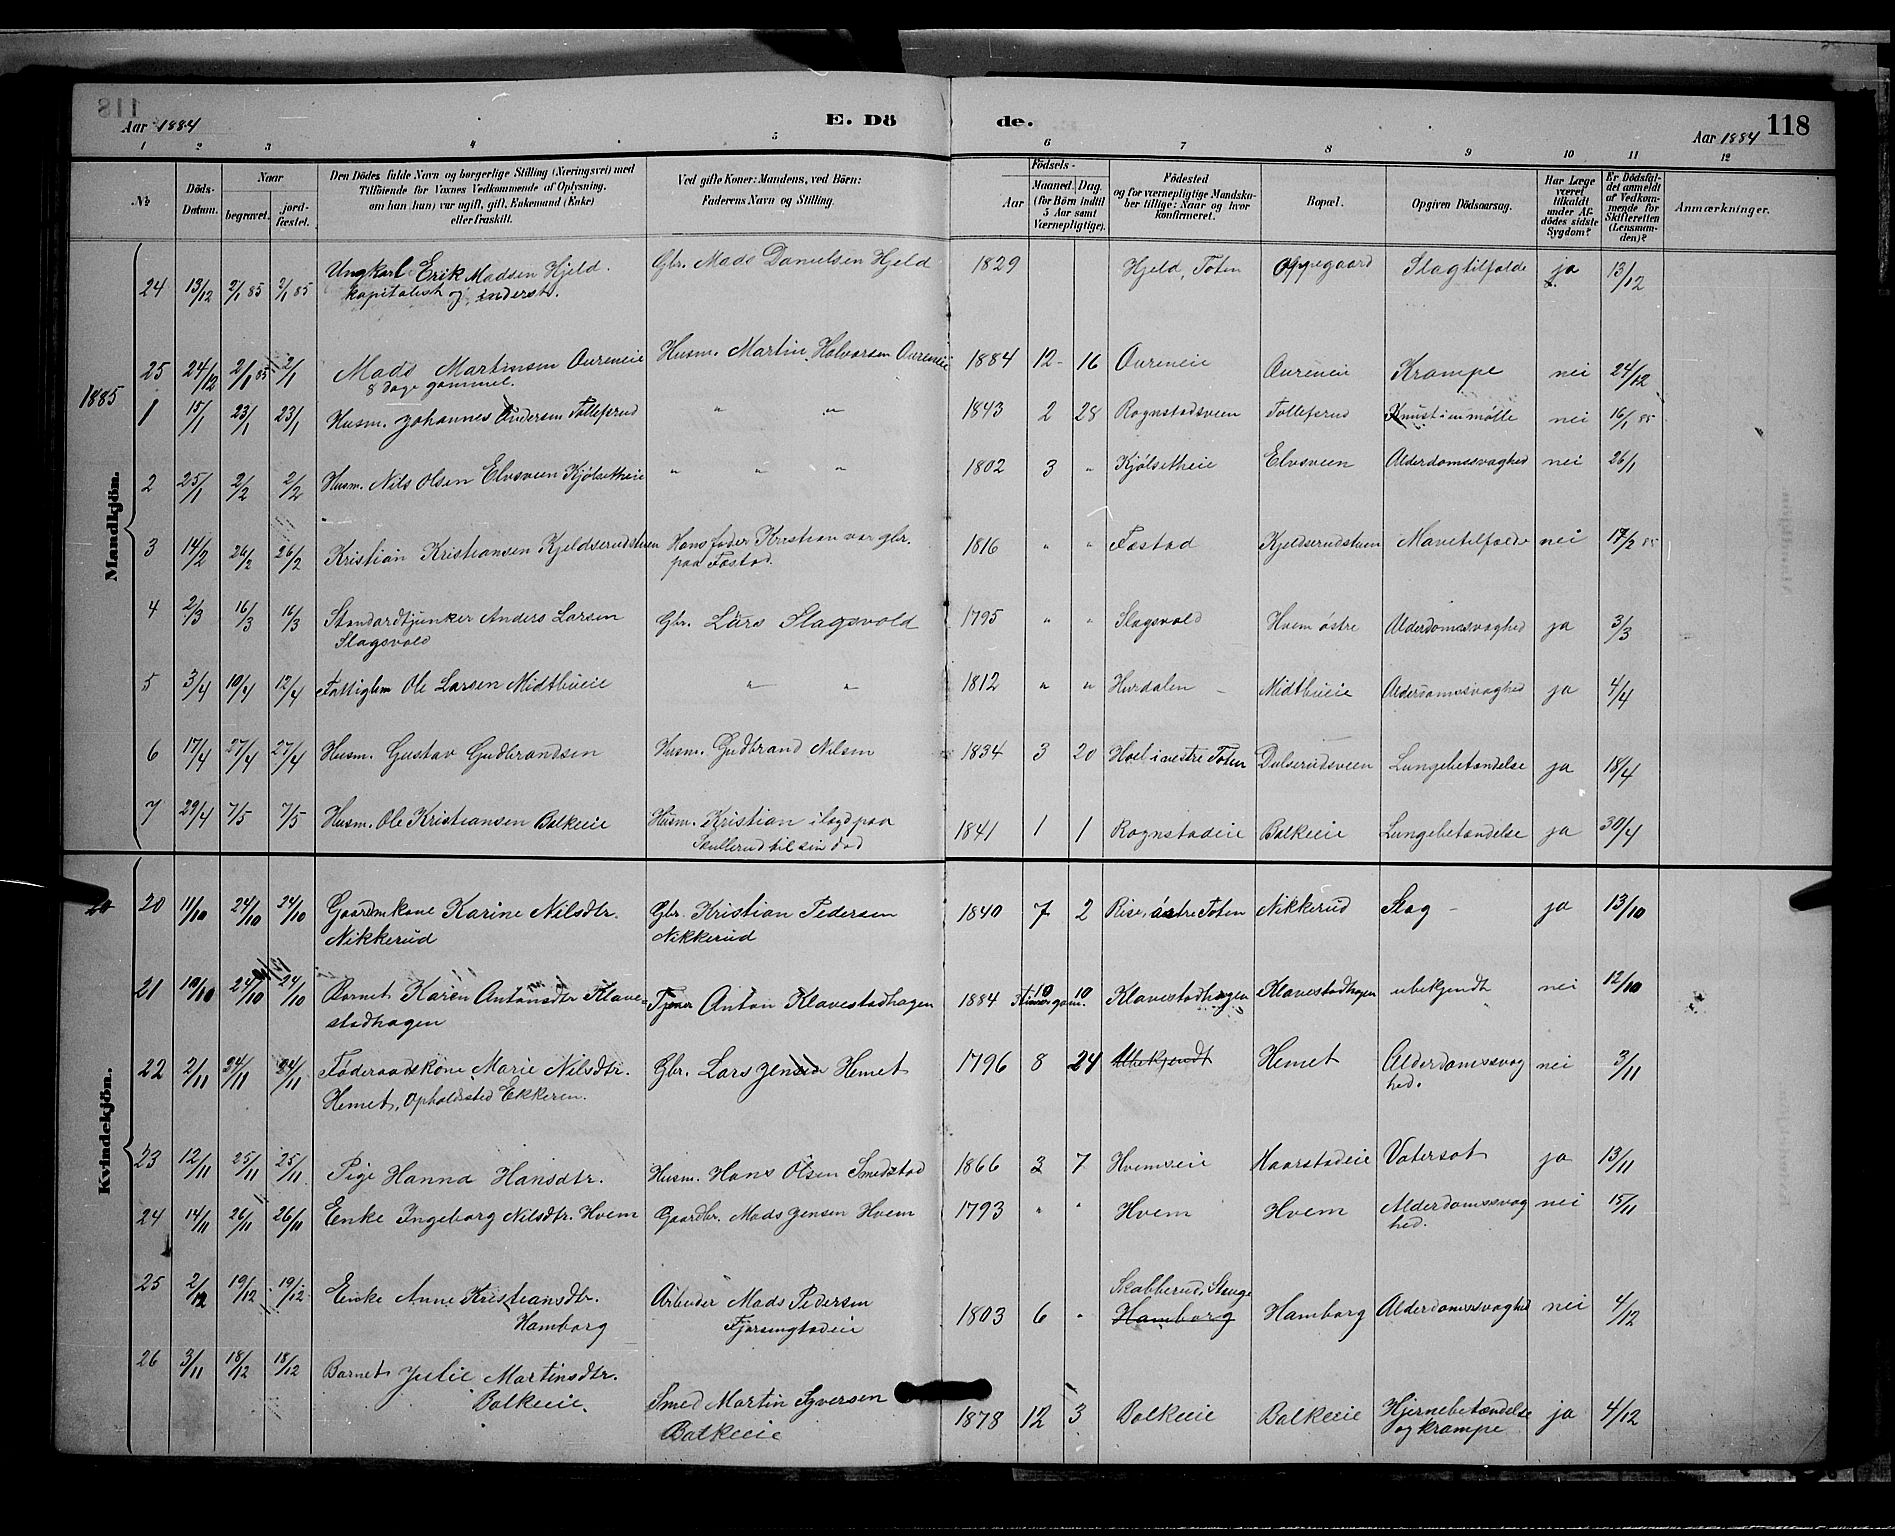 118
Aar 1884
E. Dö
de.
Aar 1884
118
1 2 3 4 5 6 7 8 9 10 11 12
No
Döds-Datum.
Naar
begravet.
jord-fæstet.
Den Dödes fulde Navn og borgerlige Stilling (Næringsvei) med
Tilföiende for Voxnes Vedkommende af Oplysning,
om han (hun) var ugift, gift, Enkemand (Enke)
eller fraskilt.
Ved gifte Koner: Mandens, ved Börn:
Faderens Navn og Stilling.
Födsels-
Aar
Maaned. Dag.
(for Börn indtil
5 Aar samt
Værnepligtige).
Födested
og for værnepligtige Mandska-
ber tillige: Naar og hvor
konfirmeret.
Bopæl.
Opgiven Dödsaarsag.
Har Læge
været
tilkaldt
under Af-
dödes sidste
Sygdom?
Er Dödsfal-
det anmeldt
af Vedkom-
mende for
Skifteretten
(Lensman-
den)?
Anmærkninger.
Mandkjön.
24 13/12 2/1 85 2/1 85 Ungkarl Erik Madsen Hjeld. Gbr. Mads Danielsen Hjeld 1829 Hjeld, Toten Oppegaard Slagtilfælde ja 13/12
kapitalist og inderst.
25 24/12 2/1 85 2/1 Mads Martinsen Aureneie Husm. Martin Halvorsen Aureneie 1884 12 - 16 Aureneie Aureneie Krampe nei 24/12
8 dage gammel.
1885
1 15/1 23/1 23/1 Husm. Johannes Andersen Tollefsrud " " 1843 2 28 Rognstadsveen Tollefsrud Knust i en mølle nei 16/1 85
2 25/1 2/2 2/2 Husm. Nils Olsen Elvsveen Kjølsetheie " " " 1802 3 " Kjølsetheie Elvsveen Alderdomssvaghed nei 26/1
3 14/2 26/2 26/2 Kristian Kristiansen Kjeldserudstuen Hans fader Kristian var gbr. 1816 " " Fæstad Kjeldserudstuen Mavetilfælde nei 17/2 85
paa Fæstad.
4 2/3 16/3 16/3 Standardtjunker Anders Larsen Gbr. Lars Slagsvold 1795 " " Slagsvold Hvem østre Alderdomssvaghed ja 3/3
Slagsvold
5 3/4 10/4 12/4 Fattiglem Ole Larsen Midtbueie " " 1812 " " Hurdalen - Midtbueie Alderdomssvaghed ja 4/4
6 17/4 27/4 27/4 Husm. Gustav Gudbrandsen Husm. Gudbrand Nilsen 1834 3 20 Hoel i vestre Toten Dulserudsveen Lungebetændelse ja 18/4
7 29/4 7/5 7/5 Husm. Ole Kristiansen Balkeeie Husm. Kristian i lægd paa 1841 1 1 Rognstadeie Balkeie Lungebetændelse ja 30/4
Skullerud til sin død
Kvindekjön.
20 11/10 24/10 24/10 Gaardmkone Karine Nilsdtr. Gbr. Kristian Pedersen 1840 7 2 Rise, østre Toten Nikkerud Slag - ja 13/10
Nikkerud Nikkerud
21 10/10 24/10 24/10 Barnet Karen Antonsdtr Klave- Tjener Anton Klavestadhagen 1884 10 10 Klavestadhagen Klavestadhagen ubekjendt nei 12/10
stadhagen
22 2/11 24/11 24/11 Føderaadskone Marie Nilsdtr. Gbr. Lars Jensen Hemet 1796 8 24 Ubekjendt Hemet Alderdomssvag nei 3/11
Hemet, Opholdssted Ekkeren. hed.
23 12/11 25/11 25/11 Pige Hanna Hansdtr. Husm. Hans Olsen Smedstad 1866 3 7 Hvemseie Haarstadeie Vatersot ja 13/11
24 14/11 26/11 26/11 Enke Ingeborg Nilsdtr. Hvem Gaardbr. Mads Jensen Hvem 1793 " " Hvem Hvem Alderdomssvag nei 15/11
hed.
25 2/12 19/12 19/12 Enke Anne Kristiansdtr. Arbeider Mads Pedersen Skabberud, Stange
Hamborg 1803 6 " Hamborg Hamborg Alderdomssvaghed nei 4/12
26 3/11 18/12 18/12 Barnet Julie Martinsdtr.
Balkeeie. Smed Martin Syversen 1878 12 3 Balkeeie Balkeeie Hjernebetændelse ja 4/12
Balkeeie og krampe